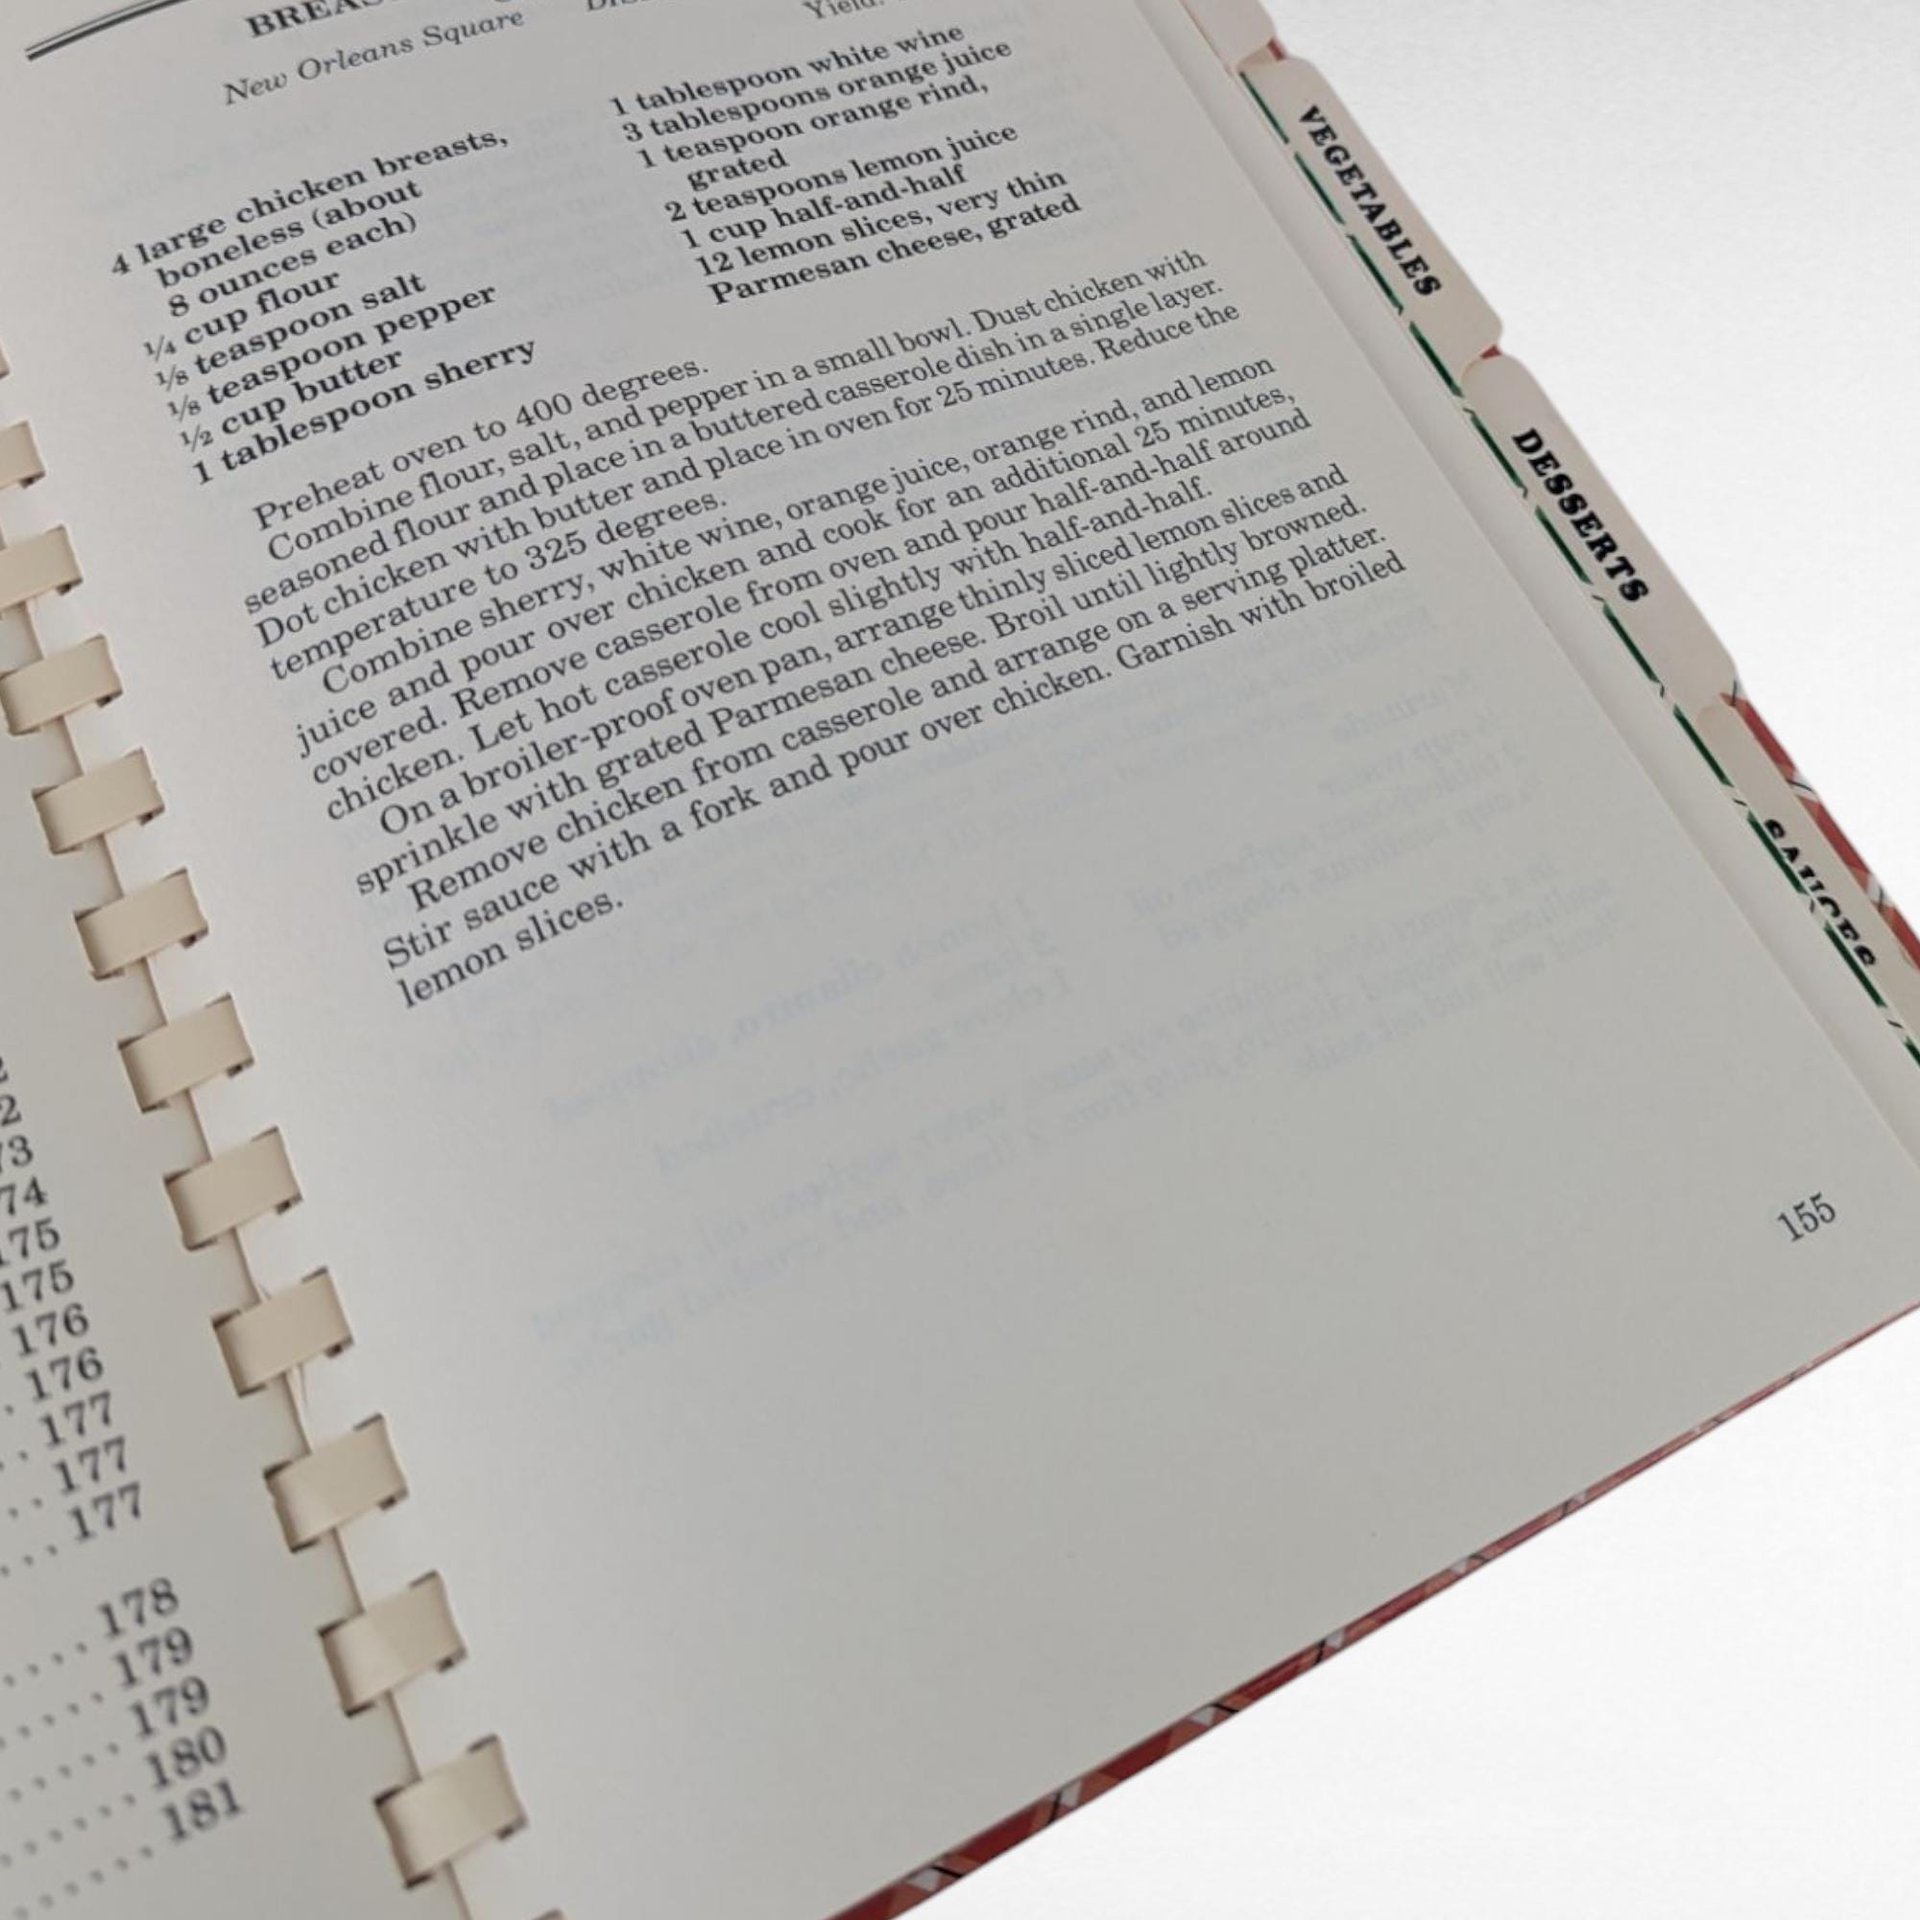 New Orleans Square
Yield:
4 large chicken breasts,
boneless (about
8 ounces each)
¼ cup flour
⅛ teaspoon salt
⅛ teaspoon pepper
½ cup butter
1 tablespoon sherry
1 tablespoon white wine
3 tablespoons orange juice
1 teaspoon orange rind,
grated
2 teaspoons lemon juice
1 cup half-and-half
12 lemon slices, very thin
Parmesan cheese, grated
Preheat oven to 400 degrees.
Combine flour, salt, and pepper in a small bowl. Dust chicken with
seasoned flour and place in a buttered casserole dish in a single layer.
Dot chicken with butter and place in oven for 25 minutes. Reduce the
temperature to 325 degrees.
Combine sherry, white wine, orange juice, orange rind, and lemon
juice and pour over chicken and cook for an additional 25 minutes,
covered. Remove casserole from oven and pour half-and-half around
chicken. Let hot casserole cool slightly with half-and-half.
On a broiler-proof oven pan, arrange thinly sliced lemon slices and
sprinkle with grated Parmesan cheese. Broil until lightly browned.
Remove chicken from casserole and arrange on a serving platter.
Stir sauce with a fork and pour over chicken. Garnish with broiled
lemon slices.
155
VEGETABLES
DESSERTS
SAUCES
175
175
176
176
177
177
177
178
179
179
180
181